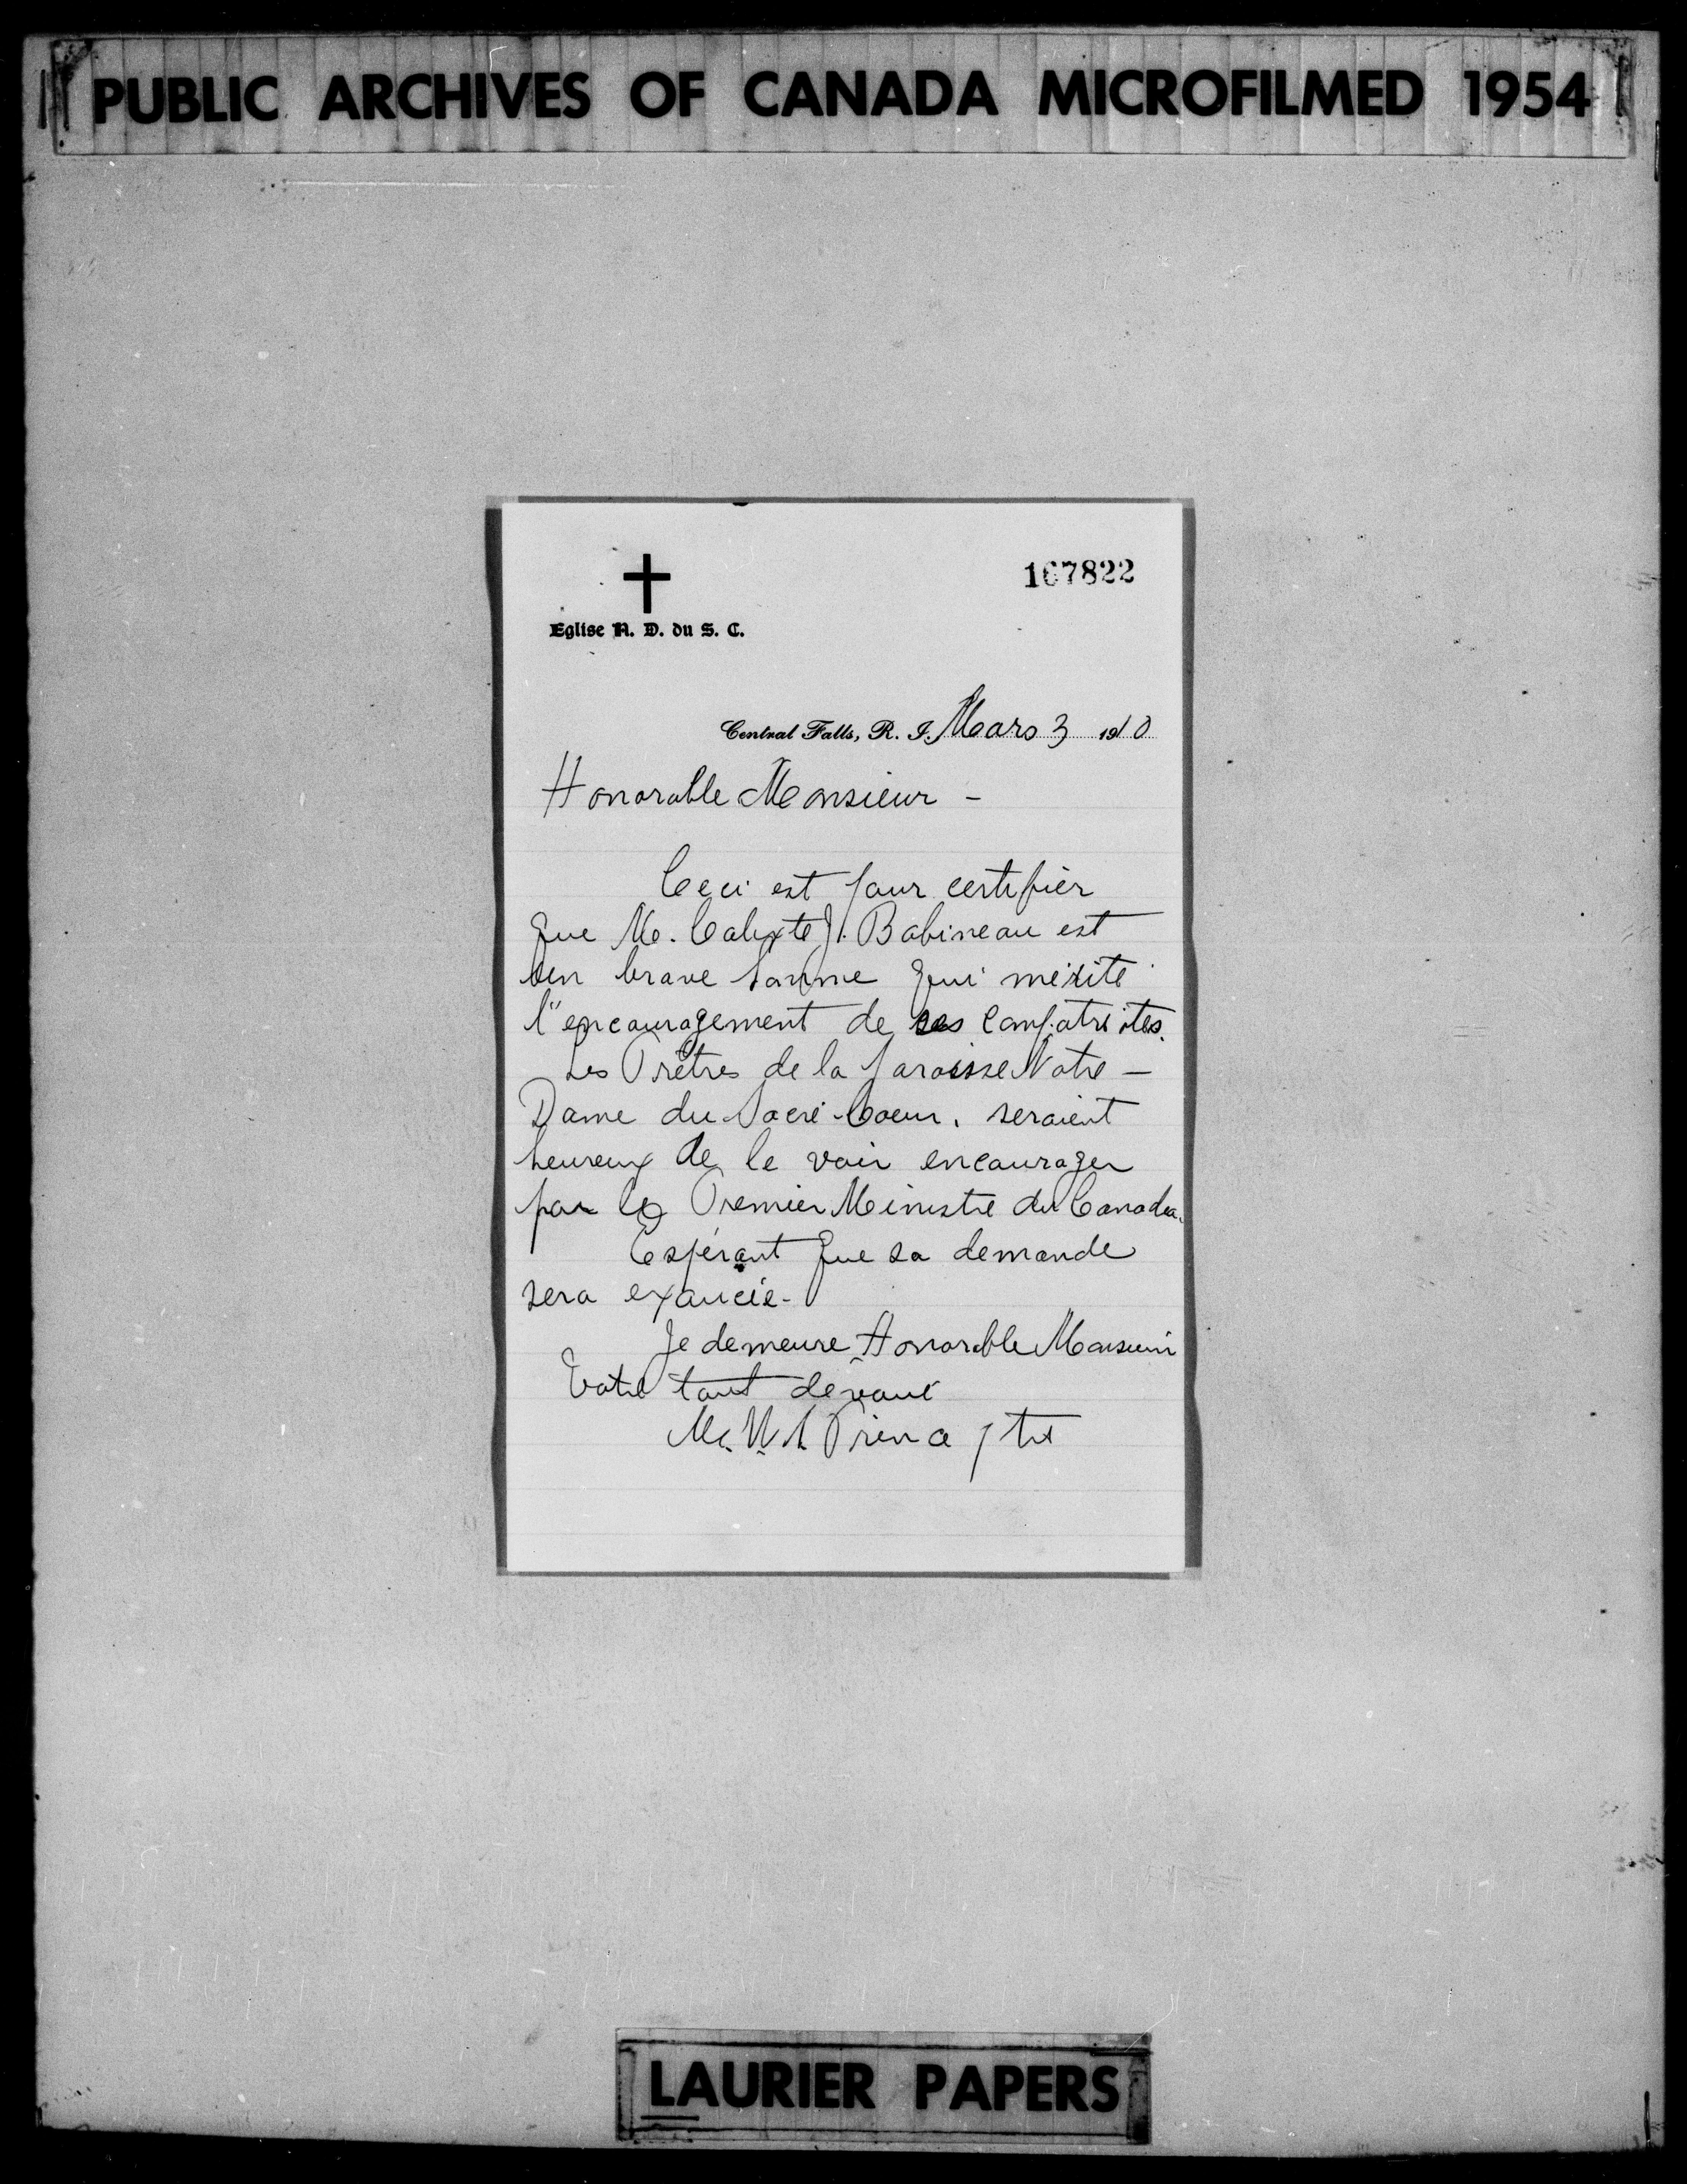 PUBLIC ARCHIVES OF CANADA MICROFILMED 1954
167822
Eglise N. D. du S. C.
Central Falls, R. I. Mars 3 1910
Honorable Monsieur -
Ceci est pour certifier
que M. Calixte J. Babineau est
un brave homme qui mérite
l'encouragement de ses compatriotes.
Les Prêtres de la paroisse Notre -
Dame du Sacré-Coeur, seraient
heureux de le voir encourager
par le Premier Ministre du Canada.
Espérant que sa demande
sera exaucée -
Je demeure Honorable Monsieur
Votre tout dévoué
Prince ptre
LAURIER PAPERS